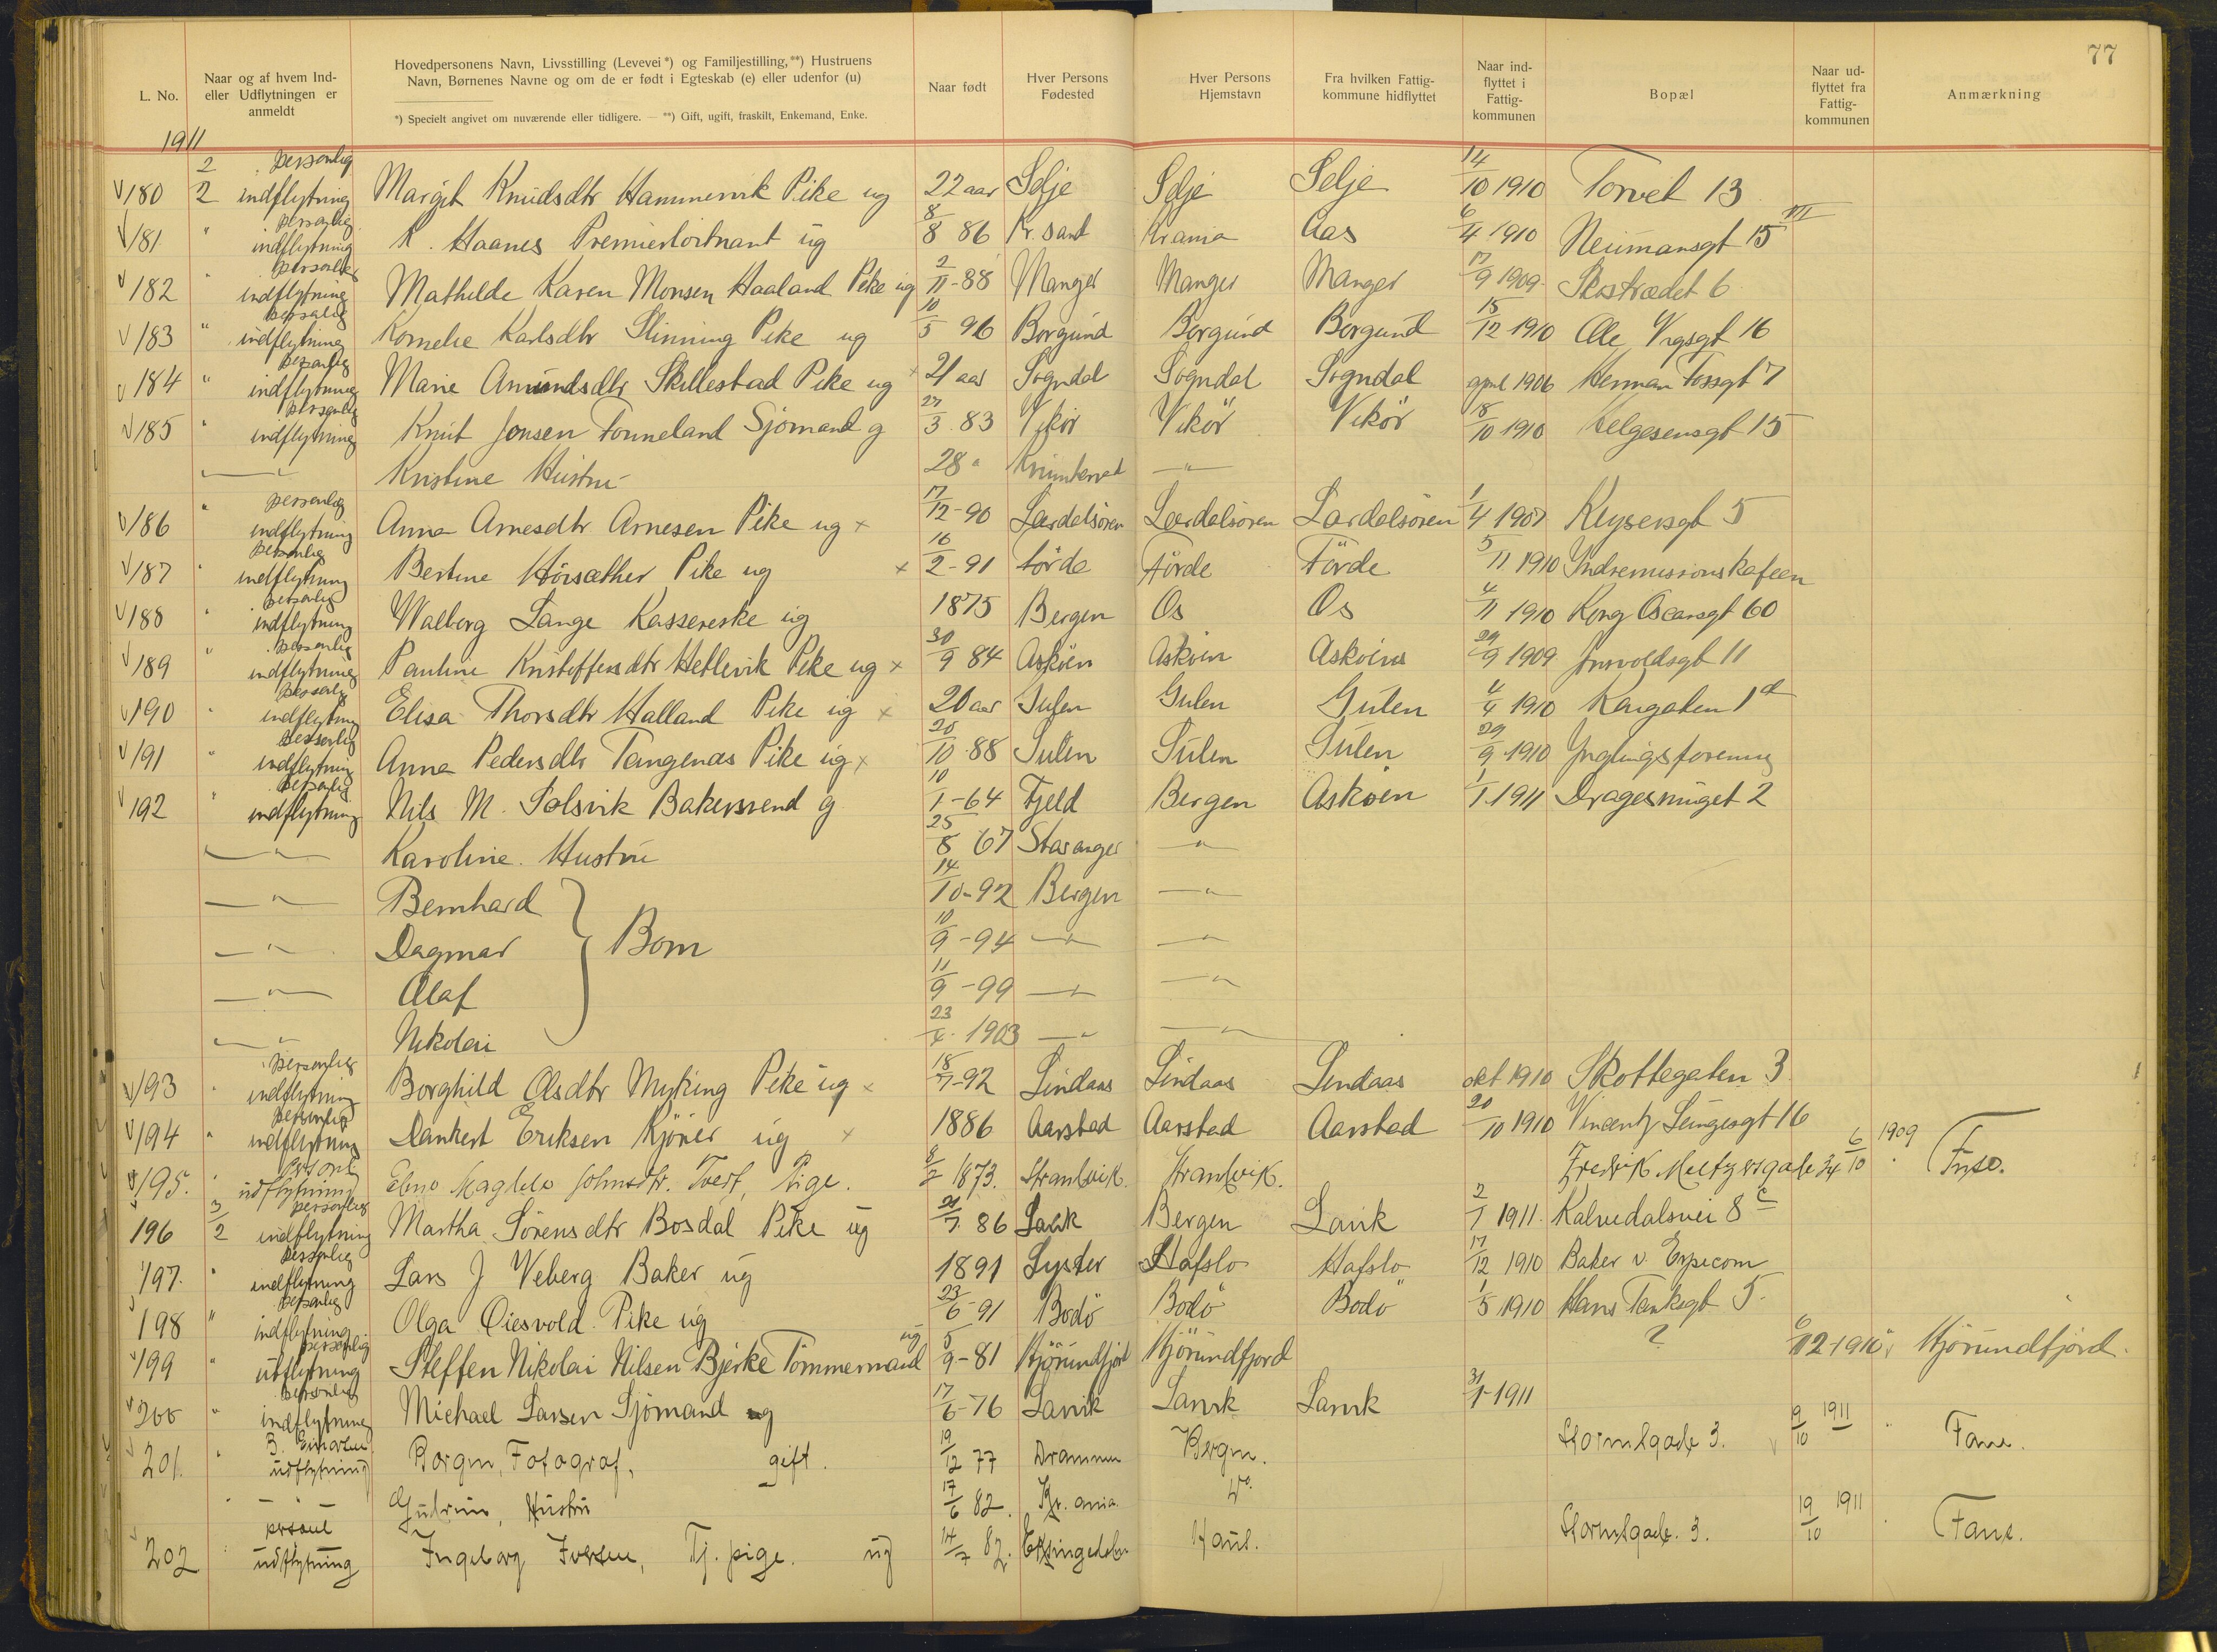 77
L. No. Naar og af hvem Ind- eller Udflytningen er anmeldt Hovedpersonens Navn, Livsstilling (Levevei*) og Familjestilling,**) Hustruens Navn, Børnenes Navne og om de er født i Egteskab (e) eller udenfor (u) Naar født Hver Persons Fødested Hver Persons Hjemstavn Fra hvilken Fattig- kommune hidflyttet Naar ind- flyttet i Fattig- kommunen Bopæl Naar ud- flyttet fra Fattig- kommunen Anmærkning
*) Specielt angivet om nuværende eller tidligere. — **) Gift, ugift, fraskilt, Enkemand, Enke.
1911
180 2/2 personlig indflytning Margit Knudsdtr Hammervik Pike ug 22 aar Selje Selje Selje 14/10 1910 Torvet 13
181 " personlig indflytning K. Haanes Premierloitnant ug 8/8 86 Kr. sand Krania Aas 6/4 1910 Neumansgt 15 III
182 " personlig indflytning Mathilde Karen Monsen Haaland Pike ug 2/11-88 Manger Manger Manger 17/9 1909 Skostrædet 6
183 " personlig indflytning Kornelie Karlsdtr Slinning Pike ug 10/5 96 Borgund Borgund Borgund 15/12 1910 Ole Vigsgt 16
184 " personlig indflytning Marie Amundsdtr Skillestad Pike ug × 21 aar Sogndal Sogndal Sogndal april 1906 Herman Fossgt 7
185 " personlig indflytning Knut Jonsen Tonneland Sjömand g 27/3 83 Vikör Vikör Vikör 18/10 1910 Helgesensgt 15
— " — Kristine Hustru 28 " — " —
186 " personlig indflytning Anna Arnesdtr Arnesen Pike ug × 17/12-90 Lærdalsören Lærdalsören Lærdalsören 1/4 1907 Keysersgt 5
187 " personlig indflytning Bertine Hörsæther Pike ug × 16/2-91 Förde Förde Förde 5/11 1910 Indremissionskafeen
188 " personlig indflytning Walborg Lange Kassererske ug 1875 Bergen Os Os 4/11 1910 Kong Oscarsgt 60
189 " personlig indflytning Pauline Kristoffersdtr Hetlevik Pike ug × 30/9 84 Asköen Asköen Asköens 29/9 1909
190 " personlig indflytning Elisa Thorsdtr Halland Pike ug × 20 aar Gulen Gulen Gulen 4/4 1910 Kaigaten 1 d
191 " personlig indflytning Anna Pedersdtr Tangenæs Pike ug × 28/10-88 Sulen Sulen Sulen 29/9 1910 Ynglingsforening
192 " personlig indflytning Nils M. Solsvik Bakersvend g 10/1-64 Fjeld Bergen Asköen 1/1 1911 Dragesmuget 2
— " — Karoline Hustru 25/8 67 Stavanger — " —
— " — Bernhard } Born 14/10-92 Bergen — " —
— " — Dagmar 10/9-94 — " — — " —
— " — Olaf 11/9-99 — " — — " —
— " — Nikolai 23/4 1903 — " — — " —
193 " personlig indflytning Borghild Olsdtr Myking Pike ug × 18/7-92 Lindaas Lindaas Lindaas okt 1910 Skottegaten 3
194 " personlig indflytning Dankert Eriksen Kjörer ug × 1886 Aarstad Aarstad Aarstad 20/10 1910 Vincentz Lungesgt 16
195. " personl udflytning Magdele Johnsdtr. Tveit, Pige. 8/2 1873. Strandvik. Strandvik. Fredrik Meltzersgade 34 6/10 1909 Fuse.
196 3/2 personlig indflytning Martha Sörensdtr Bosdal Pike ug 21/7 86 Lavik Bergen Lavik 2/1 1911. Kalvedalsvei 8 c
197. " personlig indflytning Lars J Veberg Baker ug 1891 Lyster Hafslo Hafslo 17/12 1910 Baker v. Erpecom
198 " personlig indflytning Olga Oiesvold Pike ug 23/6-91 Bodö Bodö Bodö 1/5 1910 Hans Tanksgt 5
199 " personlig utflytning Steffen Nikolai Nilsen Bjerke Tömmermand ug 5/9-81 Hjörundfjord Hjörundfjord ? 6/12-1910 Hjörundfjord.
200 " personlig indflytning Michael Larsen Sjömand ug 17/6-76 Lavik Lavik Lavik 31/1-1911
201. " udflytning Borgen, Fotograf, gift. 19/12 77 Drammen Bergen. Stormsgade 3. 19/10 1911 Fane.
" — " — Gudrun, Hustru 17/6 82. Kr. ania. Do.
202 " personl udflytning Ingeborg Iversen, Tj. pige. ug 14/7 82. Eksingedalen Haus. Stormsgade. 3. 19/10 1911 Fane.